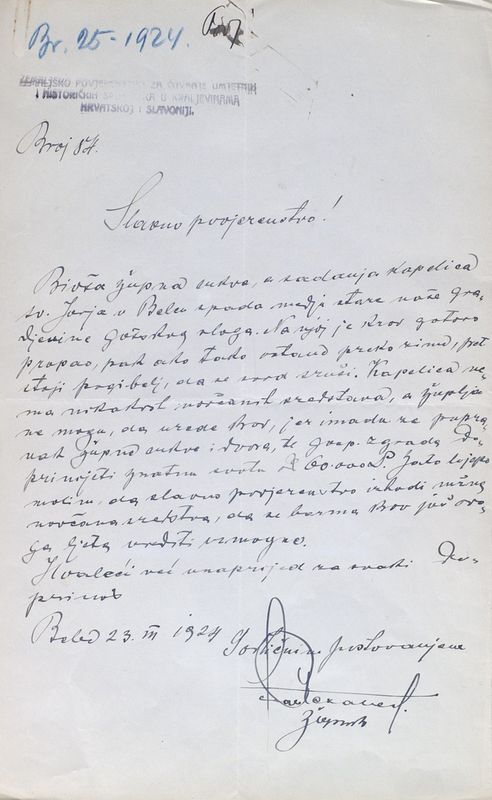 Br. 25-1924.
ZEMALJSKO POVJERENSTVO ZA ČUVANJE UMJETNIH
I HISTORIČKIH SPOMENIKA U KRALJEVINAMA
HRVATSKOJ I SLAVONIJI.
Broj 84.
Slavno povjerenstvo!
Bivša župna crkva, a sadanja kapelica
sv. Jurja u Belcu spada medj stare naše gra-
djevine gotskog sloga. Na njoj je krov gotovo
propao, pak ako tako ostane preko zime, pos-
toji pogibelj, da se svod sruši. Kapelica ne-
ma nikakvih novčanih sredstava, a župlja-
ne mogu, da urede krov, jer imadu za popra-
vak župne crkve i dvora, te gosp. zgrada do-
prinijeti znatnu svotu 60.000 Zato lijepo
molim, da slavno povjerenstvo ishodi nužna
novčana sredstva, da se barem krov još ovo-
ga ljeta urediti uzmogne.
Hvaleći već unaprijed za svaki do-
prinos
Belec 23. III 1924 S odličnim poštovanjem
župnik